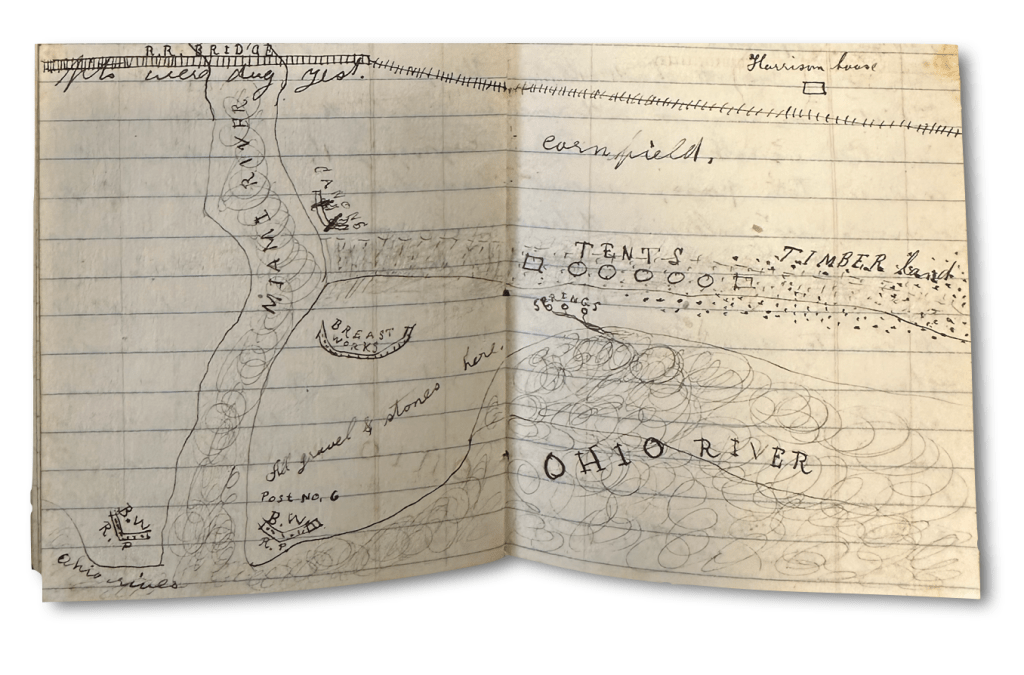 R.R. BRIDGE
were dug yest.
Harrison house
MIAMI RIVER
cornfield.
TENTS
TIMBER land
SPRINGS
BREAST
WORKS
All gravel & stones here.
OHIO RIVER
Post No. 6
B.W.
R.P
B.W
R.P
Ohio river